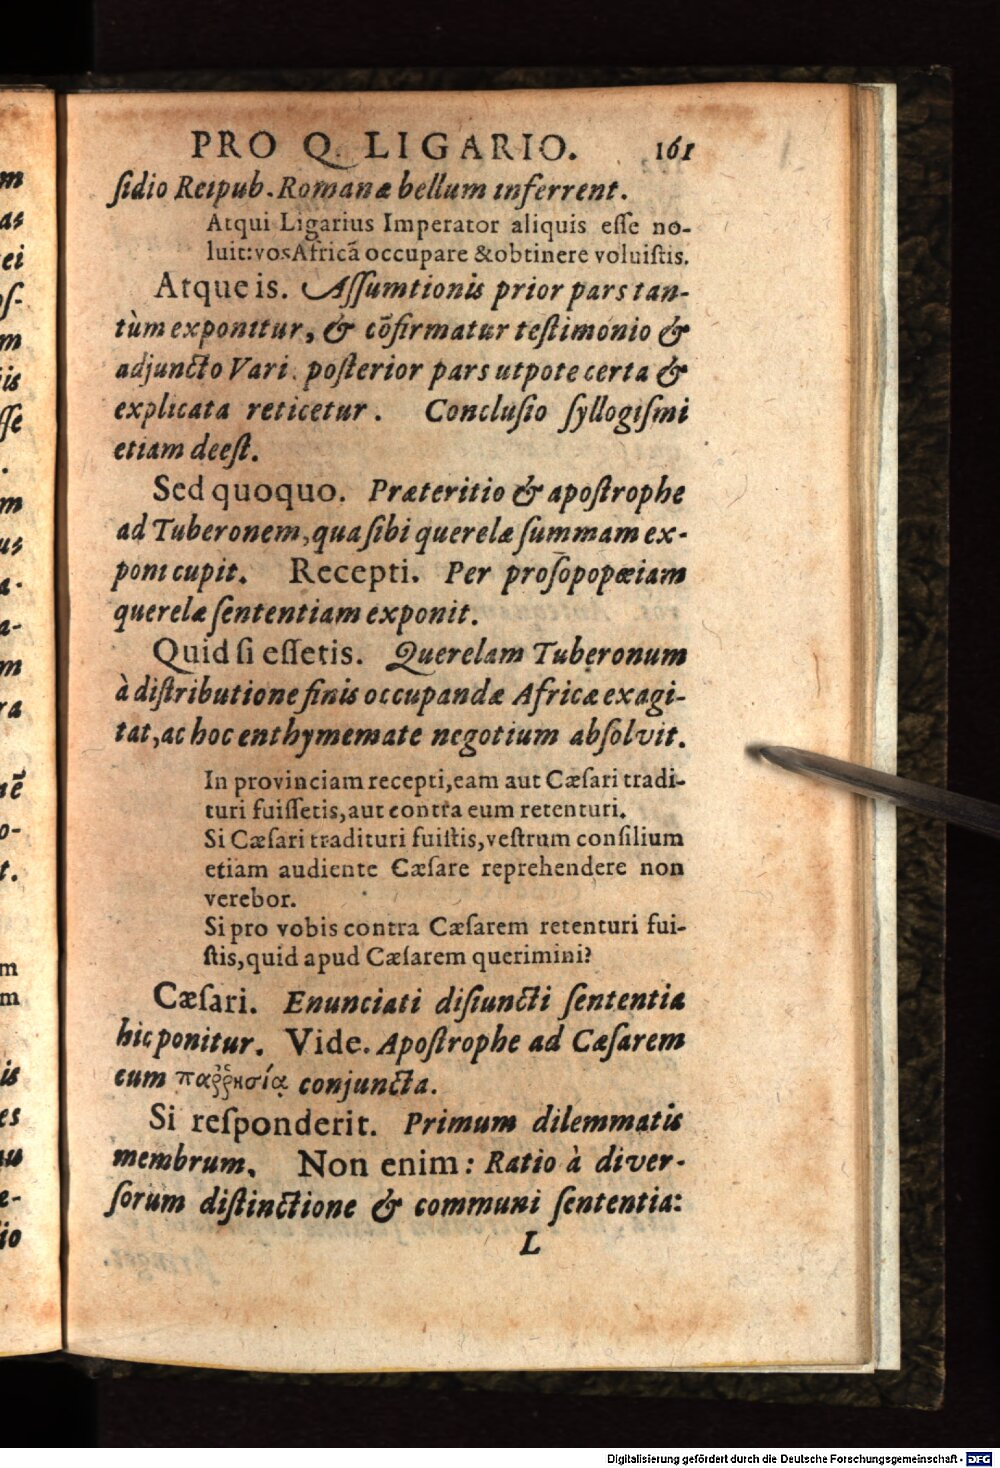 PRO Q. LIGARIO. 161
ſidio Reipub. Romanæ bellum inferrent.
Atqui Ligarius Imperator aliquis eſſe no-
luit: vos Africã occupare & obtinere voluiſtis.
Atque is. Aſſumtionis prior pars tan-
tùm exponitur, & cõfirmatur teſtimonio &
adjuncto Vari. poſterior pars utpote certa &
explicata reticetur. Concluſio ſyllogiſmi
etiam deeſt.
Sed quoquo. Præteritio & apoſtrophe
ad Tuberonem, qua ſibi querelæ ſummam ex-
poni cupit. Recepti. Per proſopopœiam
querelæ ſententiam exponit.
Quid ſi eſſetis. Querelam Tuberonum
à diſtributione finis occupandæ Africæ exagi-
tat, ac hoc enthymemate negotium abſolvit.
In provinciam recepti, eam aut Cæſari tradi-
turi fuiſſetis, aut contra eum retenturi.
Si Cæſari tradituri fuiſtis, veſtrum conſilium
etiam audiente Cæſare reprehendere non
verebor.
Si pro vobis contra Cæſarem retenturi fui-
ſtis, quid apud Cæſarem querimini?
Cæſari. Enunciati diſiuncti ſententia
hic ponitur. Vide. Apoſtrophe ad Cæſarem
cum παῤῥησίᾳ conjuncta.
Si reſponderit. Primum dilemmatis
membrum. Non enim: Ratio à diver-
ſorum diſtinctione & communi ſententia:
L
Digitalisierung gefördert durch die Deutsche Forschungsgemeinschaft - DFG